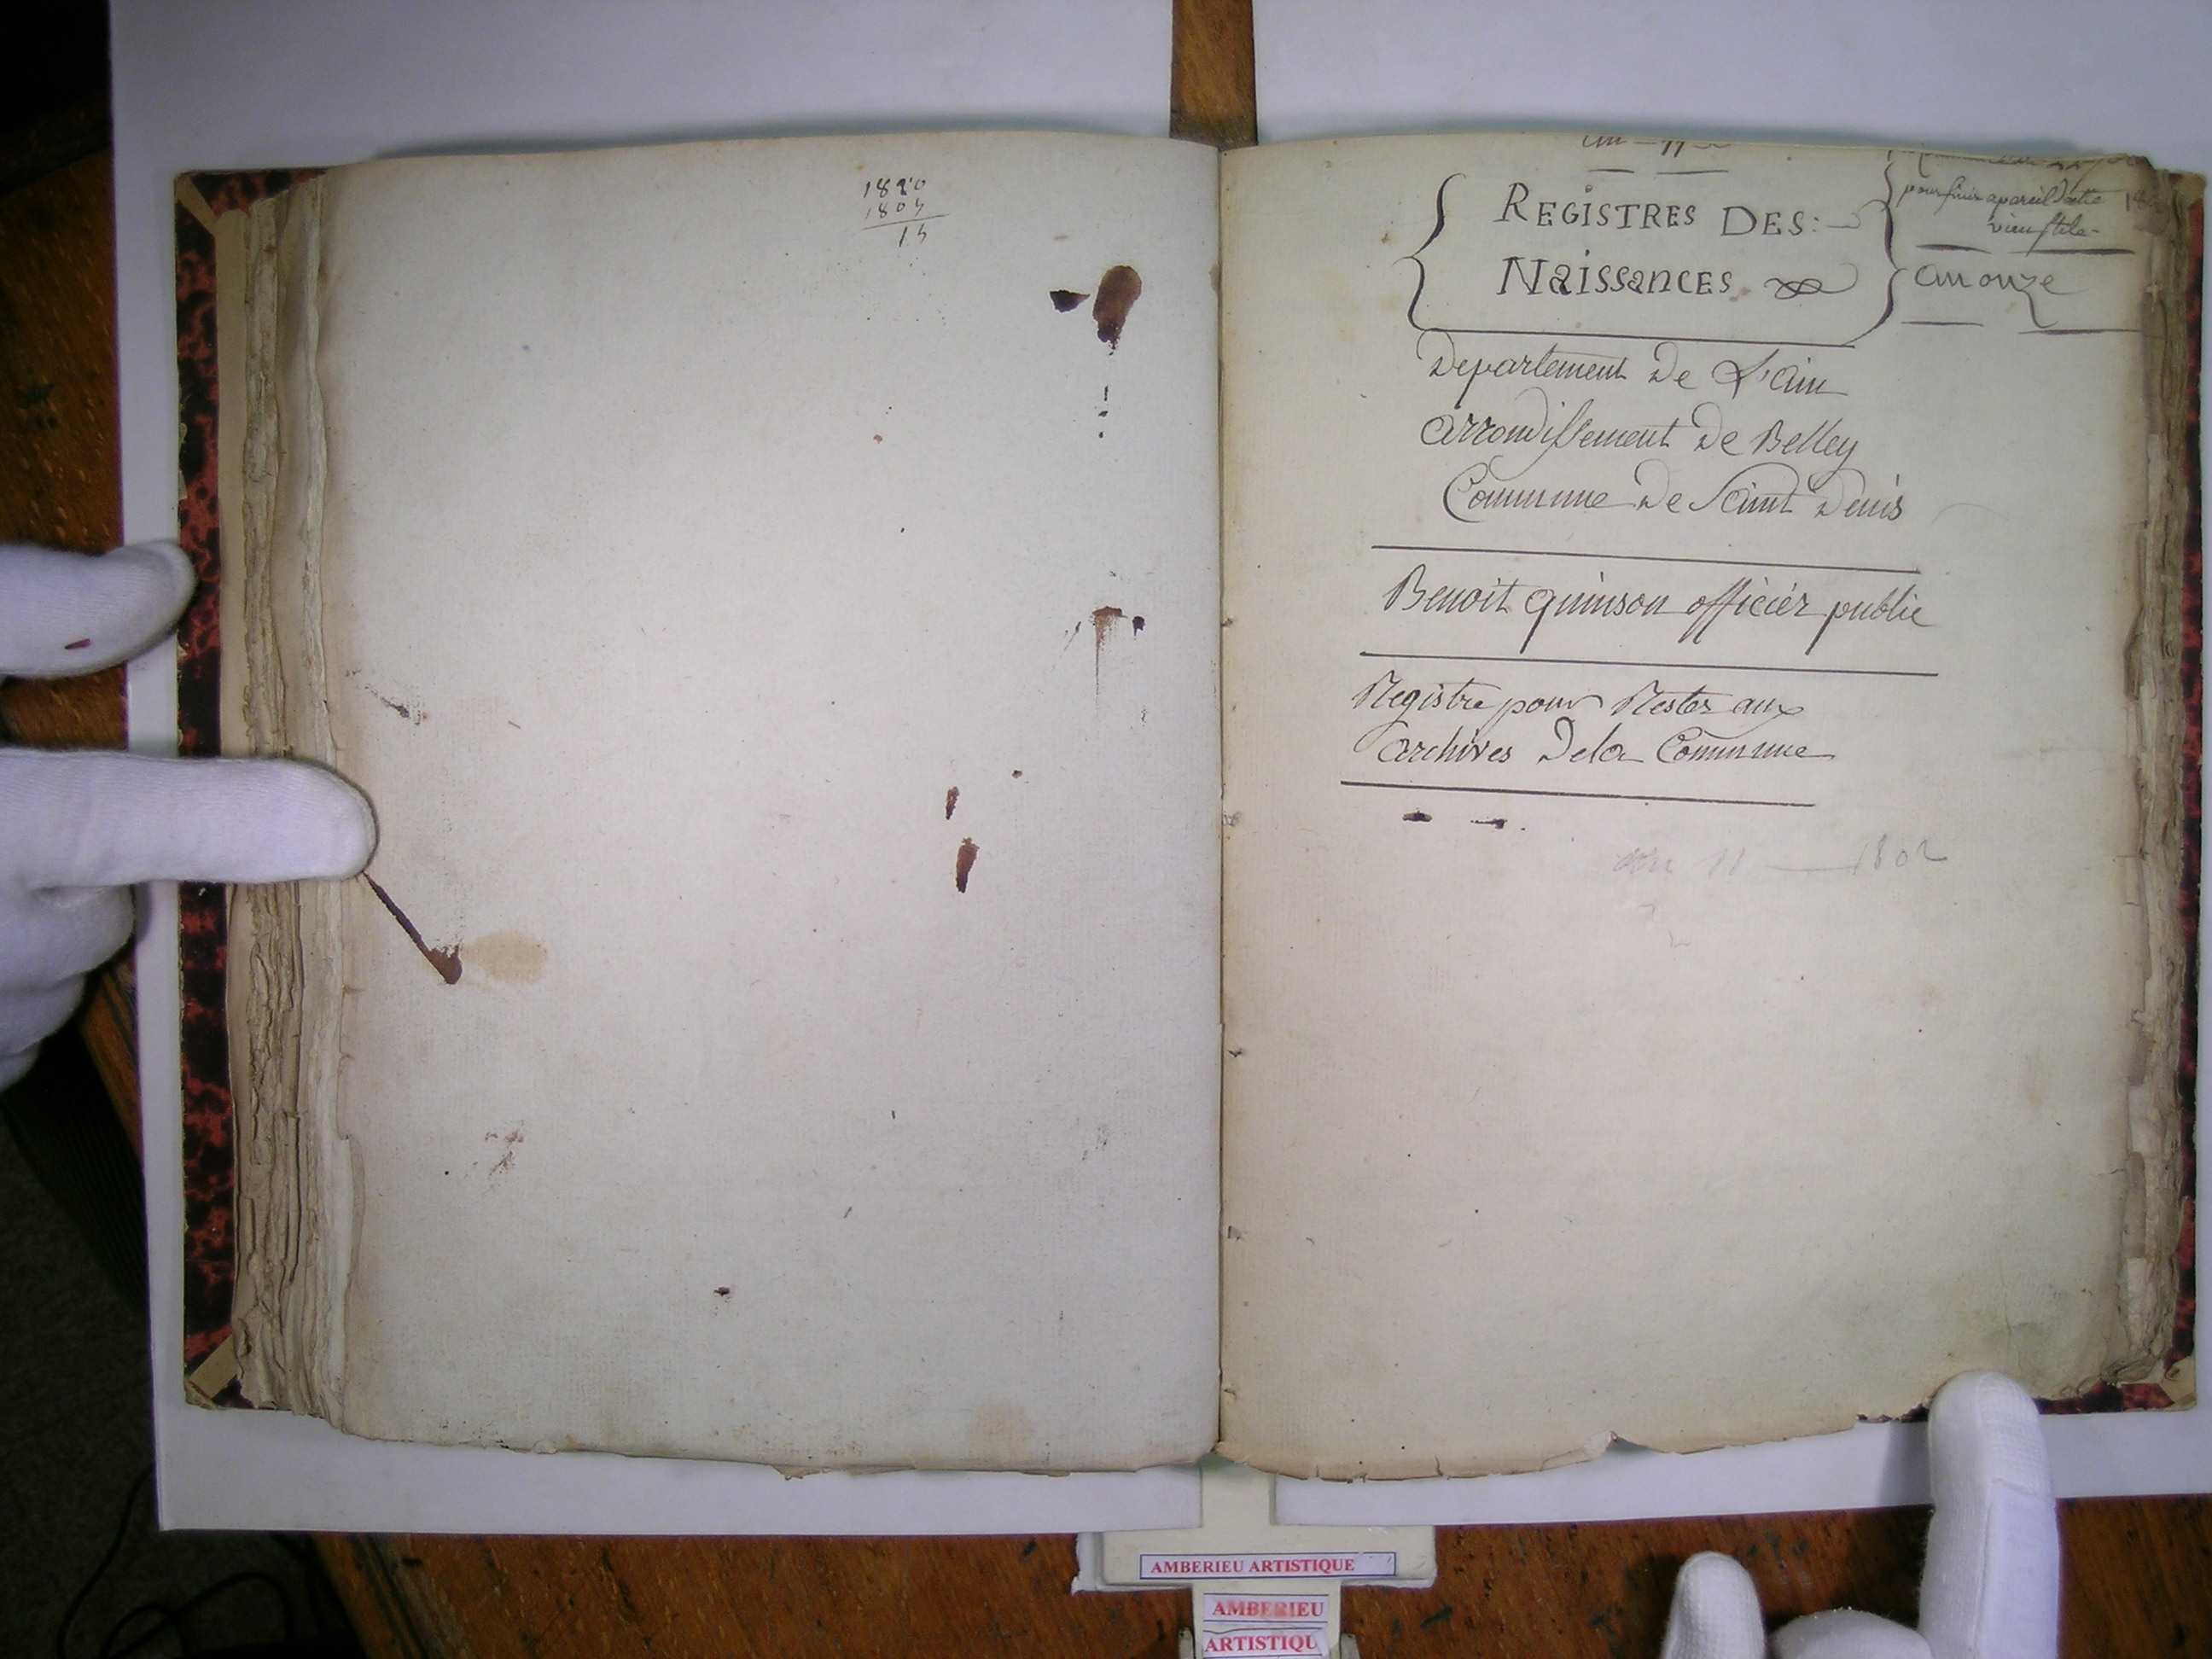 1820
1805
15
an 11
REGISTRES DES:
NaissanCES.
pour finir a pareil Datte
vieux stile
an onze
Departement De L'ain
arrondissement De Belley
Commune De Saint Denis
Benoit quinson officier public
Registre pour Rester aux
archives Dela Commune
an 11 — 1802
AMBERIEU ARTISTIQUE
AMBERIEU
ARTISTIQU